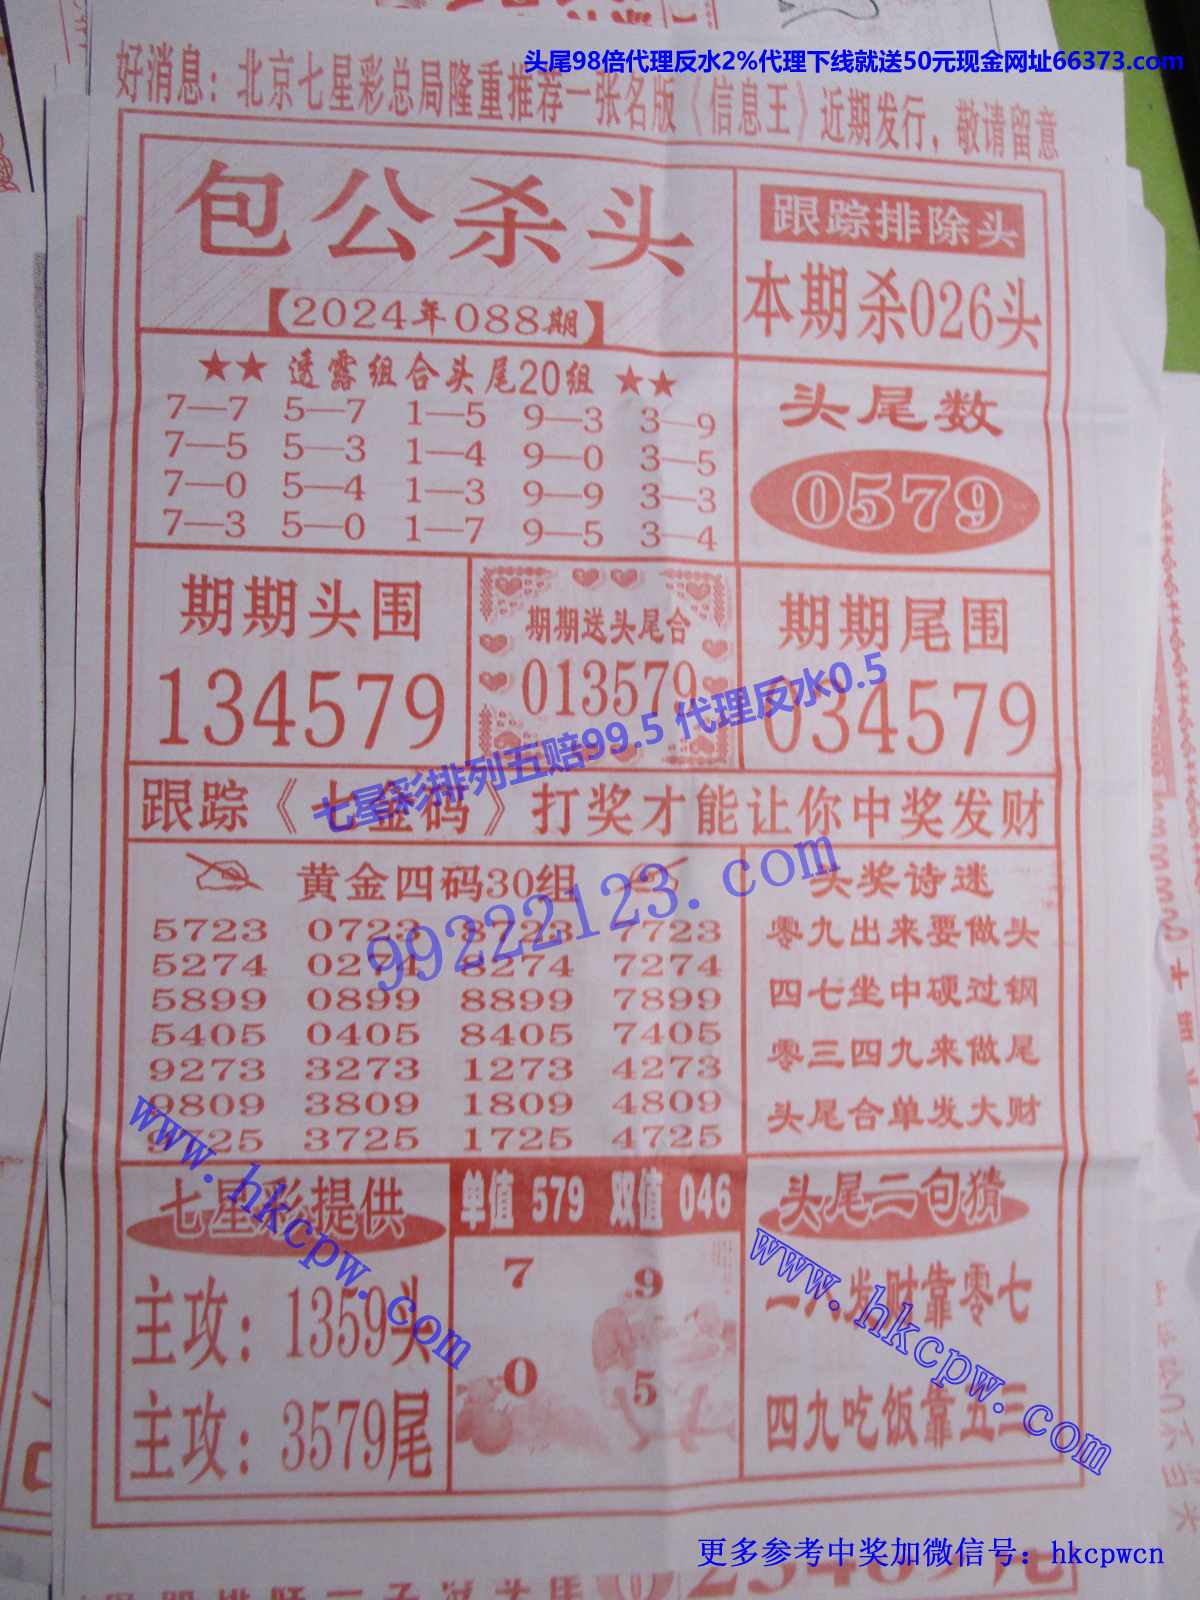 头尾98倍代理反水2%代理下线就送50元现金网址66373.com
好消息：北京七星彩总局隆重推荐一张名版《信息王》近期发行，敬请留意
包公杀头
【2024年088期】
跟踪排除头
本期杀026头
★★ 透露组合头尾20组 ★★
7—7 5—7 1—5 9—3 3—9
7—5 5—3 1—4 9—0 3—5
7—0 5—4 1—3 9—9 3—3
7—3 5—0 1—7 9—5 3—4
头尾数
0579
期期头围
134579
期期送头尾合
013579
期期尾围
034579
七星彩排列五赔99.5 代理反水0.5
跟踪《七金码》打奖才能让你中奖发财
黄金四码30组
5723 0723 8723 7723
5274 0274 8274 7274
5899 0899 8899 7899
5405 0405 8405 7405
9273 3273 1273 4273
9809 3809 1809 4809
9725 3725 1725 4725
99222123.com
头奖诗迷
零九出来要做头
四七坐中硬过钢
零三四九来做尾
头尾合单发大财
七星彩提供
主攻：1359头
主攻：3579尾
www.hkcpw.com
单值 579 双值 046
7 9
0 5
头尾二句猜
一八发财靠零七
四九吃饭靠五三
www.hkcpw.com
更多参考中奖加微信号：hkcpwcn